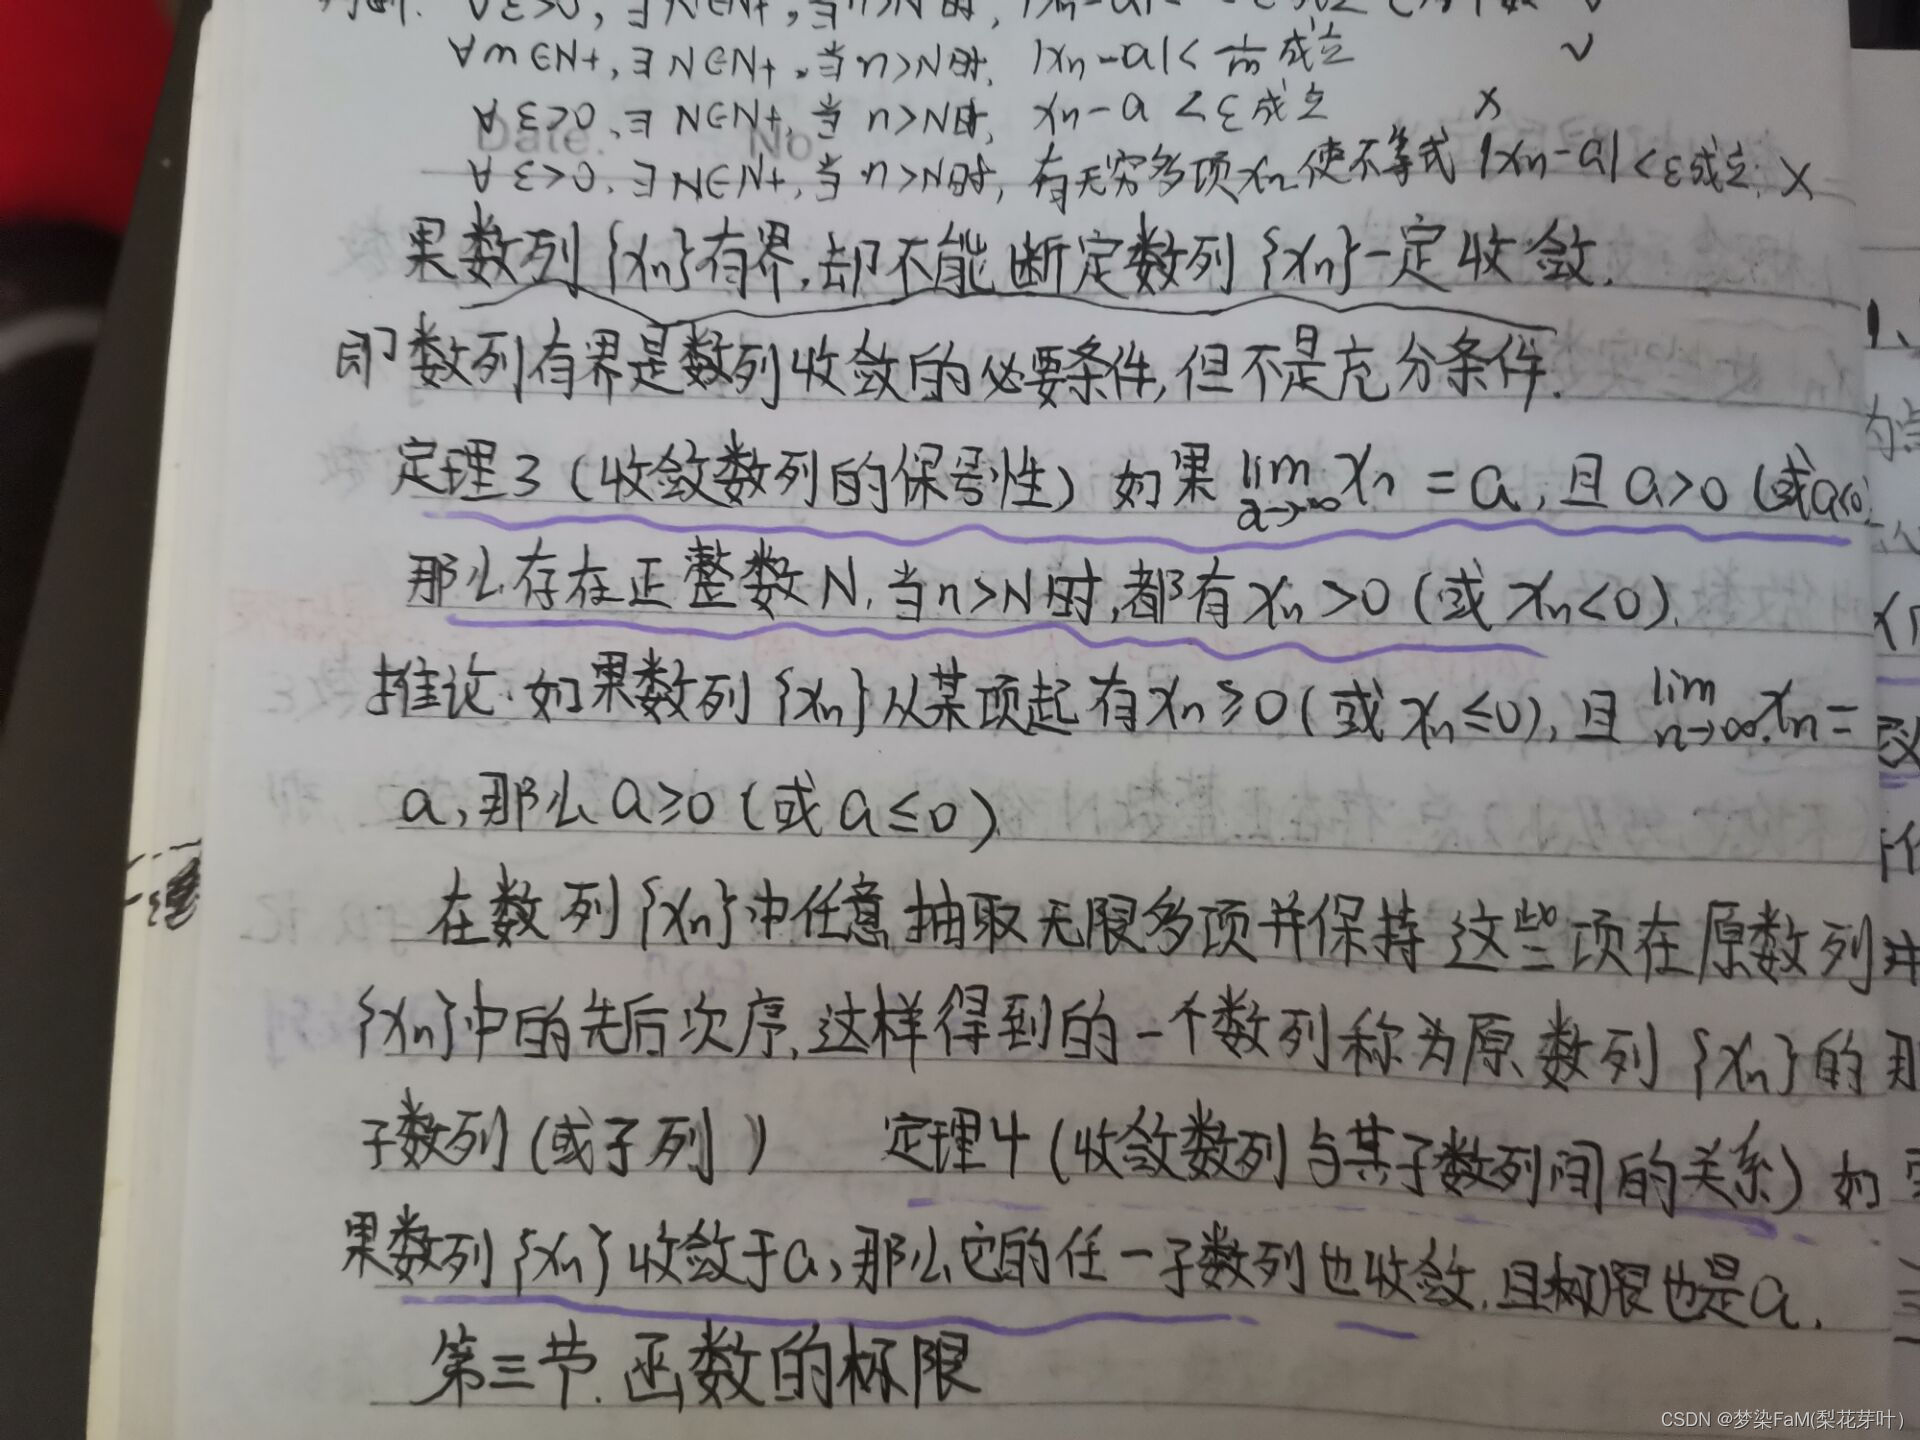 ∀ε>0, ∃N∈N+, 当n>N时, |xn-a|
∀m∈N+, ∃N∈N+, 当n>N时, |xn-a|<1/m成立 √
∀ε>0, ∃N∈N+, 当n>N时, xn-a<ε成立 ×
∀ε>0, ∃N∈N+, 当n>N时, 有无穷多项xn使不等式|xn-a|<ε成立. ×
Date. No
果数列{xn}有界,却不能断定数列{xn}一定收敛.
即数列有界是数列收敛的必要条件,但不是充分条件.
定理3(收敛数列的保号性) 如果 lim a→∞ xn=a, 且a>0(或a<0)
那么存在正整数N,当n>N时,都有xn>0(或xn<0).
推论.如果数列{xn}从某项起有xn≥0(或xn≤0),且 lim n→∞ xn=
a,那么a≥0(或a≤0)
在数列{xn}中任意抽取无限多项并保持这些项在原数列
{xn}中的先后次序,这样得到的一个数列称为原数列{xn}的
子数列(或子列) 定理4(收敛数列与其子数列间的关系)如
果数列{xn}收敛于a,那么它的任一子数列也收敛,且极限也是a.
第三节.函数的极限
CSDN @梦染FaM(梨花芽叶)